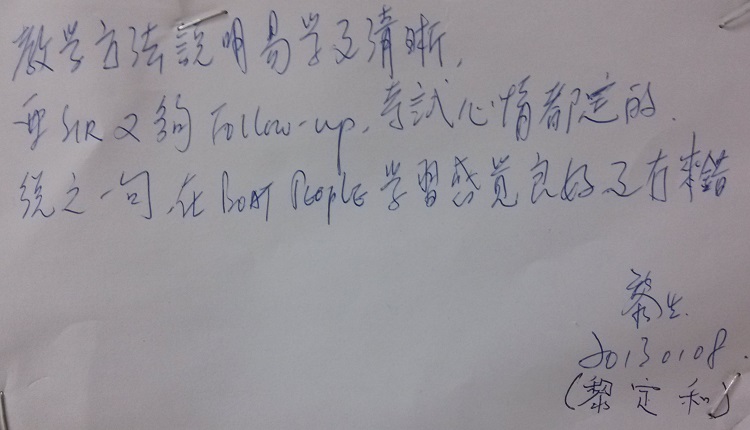 教学方法說明易学又清晰,
毎SIR又夠Follow-up,考試心情都定的.
綂之一句,在BOAT PEOPLE学習感觉良好又有來錯
黎生.
20130108.
(黎定和)